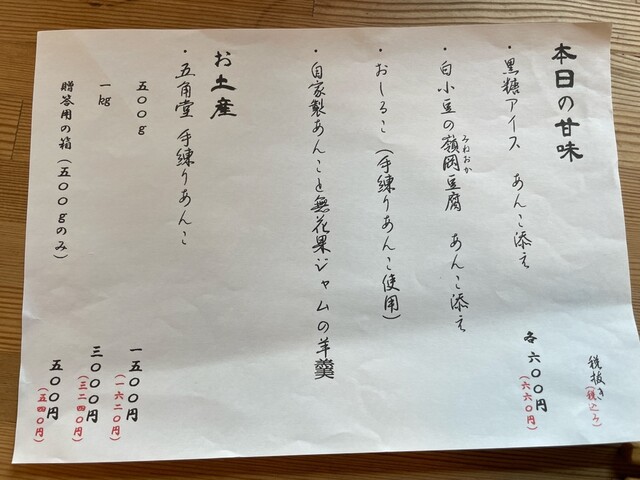 本日の甘味
税抜き(税込み)
・黒糖アイス あんこ添え
各六〇〇円
(六六〇円)
・白小豆の嶺岡豆腐 あんこ添え
みねおか
・おしるこ(手練りあんこ使用)
・自家製あんこと無花果ジャムの羊羹
お土産
・五角堂 手練りあんこ
五〇〇g 一五〇〇円
(一六二〇円)
一kg 三〇〇〇円
(三二四〇円)
贈答用の箱(五〇〇gのみ) 五〇〇円
(五四〇円)